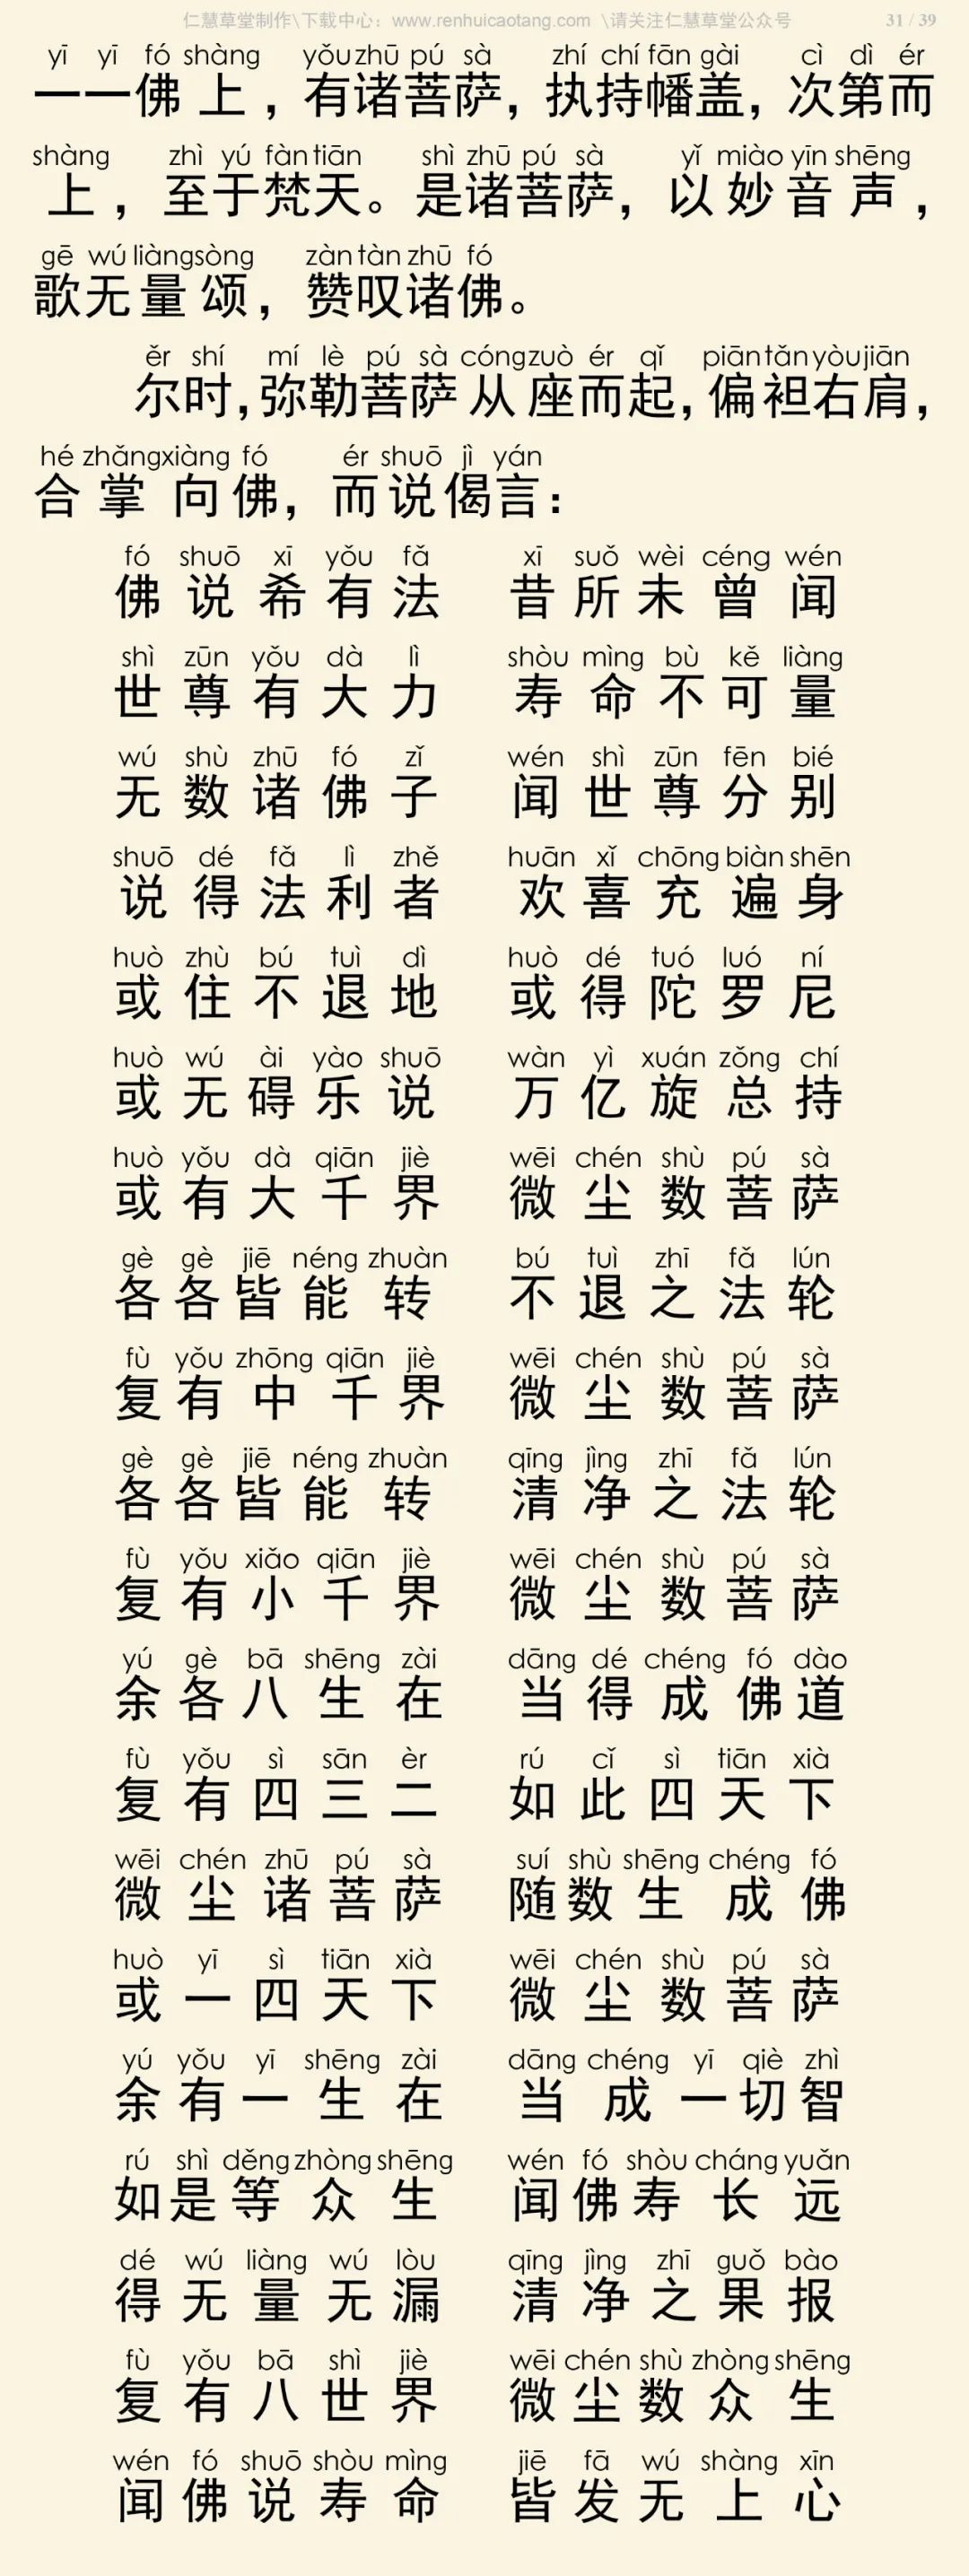 仁慧草堂制作\下载中心：www.renhuicaotang.com \请关注仁慧草堂公众号 31 / 39
yī yī fó shàng yǒu zhū pú sà zhí chí fān gài cì dì ér
一一佛上，有诸菩萨，执持幡盖，次第而
shàng zhì yú fàn tiān shì zhū pú sà yǐ miào yīn shēng
上，至于梵天。是诸菩萨，以妙音声，
gē wú liàng sòng zàn tàn zhū fó
歌无量颂，赞叹诸佛。
ěr shí mí lè pú sà cóng zuò ér qǐ piān tǎn yòu jiān
尔时，弥勒菩萨从座而起，偏袒右肩，
hé zhǎng xiàng fó ér shuō jì yán
合掌向佛，而说偈言：
fó shuō xī yǒu fǎ xī suǒ wèi céng wén
佛说希有法 昔所未曾闻
shì zūn yǒu dà lì shòu mìng bù kě liàng
世尊有大力 寿命不可量
wú shù zhū fó zǐ wén shì zūn fēn bié
无数诸佛子 闻世尊分别
shuō dé fǎ lì zhě huān xǐ chōng biàn shēn
说得法利者 欢喜充遍身
huò zhù bú tuì dì huò dé tuó luó ní
或住不退地 或得陀罗尼
huò wú ài yào shuō wàn yì xuán zǒng chí
或无碍乐说 万亿旋总持
huò yǒu dà qiān jiè wēi chén shù pú sà
或有大千界 微尘数菩萨
gè gè jiē néng zhuàn bú tuì zhī fǎ lún
各各皆能转 不退之法轮
fù yǒu zhōng qiān jiè wēi chén shù pú sà
复有中千界 微尘数菩萨
gè gè jiē néng zhuàn qīng jìng zhī fǎ lún
各各皆能转 清净之法轮
fù yǒu xiǎo qiān jiè wēi chén shù pú sà
复有小千界 微尘数菩萨
yú gè bā shēng zài dāng dé chéng fó dào
余各八生在 当得成佛道
fù yǒu sì sān èr rú cǐ sì tiān xià
复有四三二 如此四天下
wēi chén zhū pú sà suí shù shēng chéng fó
微尘诸菩萨 随数生成佛
huò yī sì tiān xià wēi chén shù pú sà
或一四天下 微尘数菩萨
yú yǒu yī shēng zài dāng chéng yī qiè zhì
余有一生在 当成一切智
rú shì děng zhòng shēng wén fó shòu cháng yuǎn
如是等众生 闻佛寿长远
dé wú liàng wú lòu qīng jìng zhī guǒ bào
得无量无漏 清净之果报
fù yǒu bā shì jiè wēi chén shù zhòng shēng
复有八世界 微尘数众生
wén fó shuō shòu mìng jiē fā wú shàng xīn
闻佛说寿命 皆发无上心